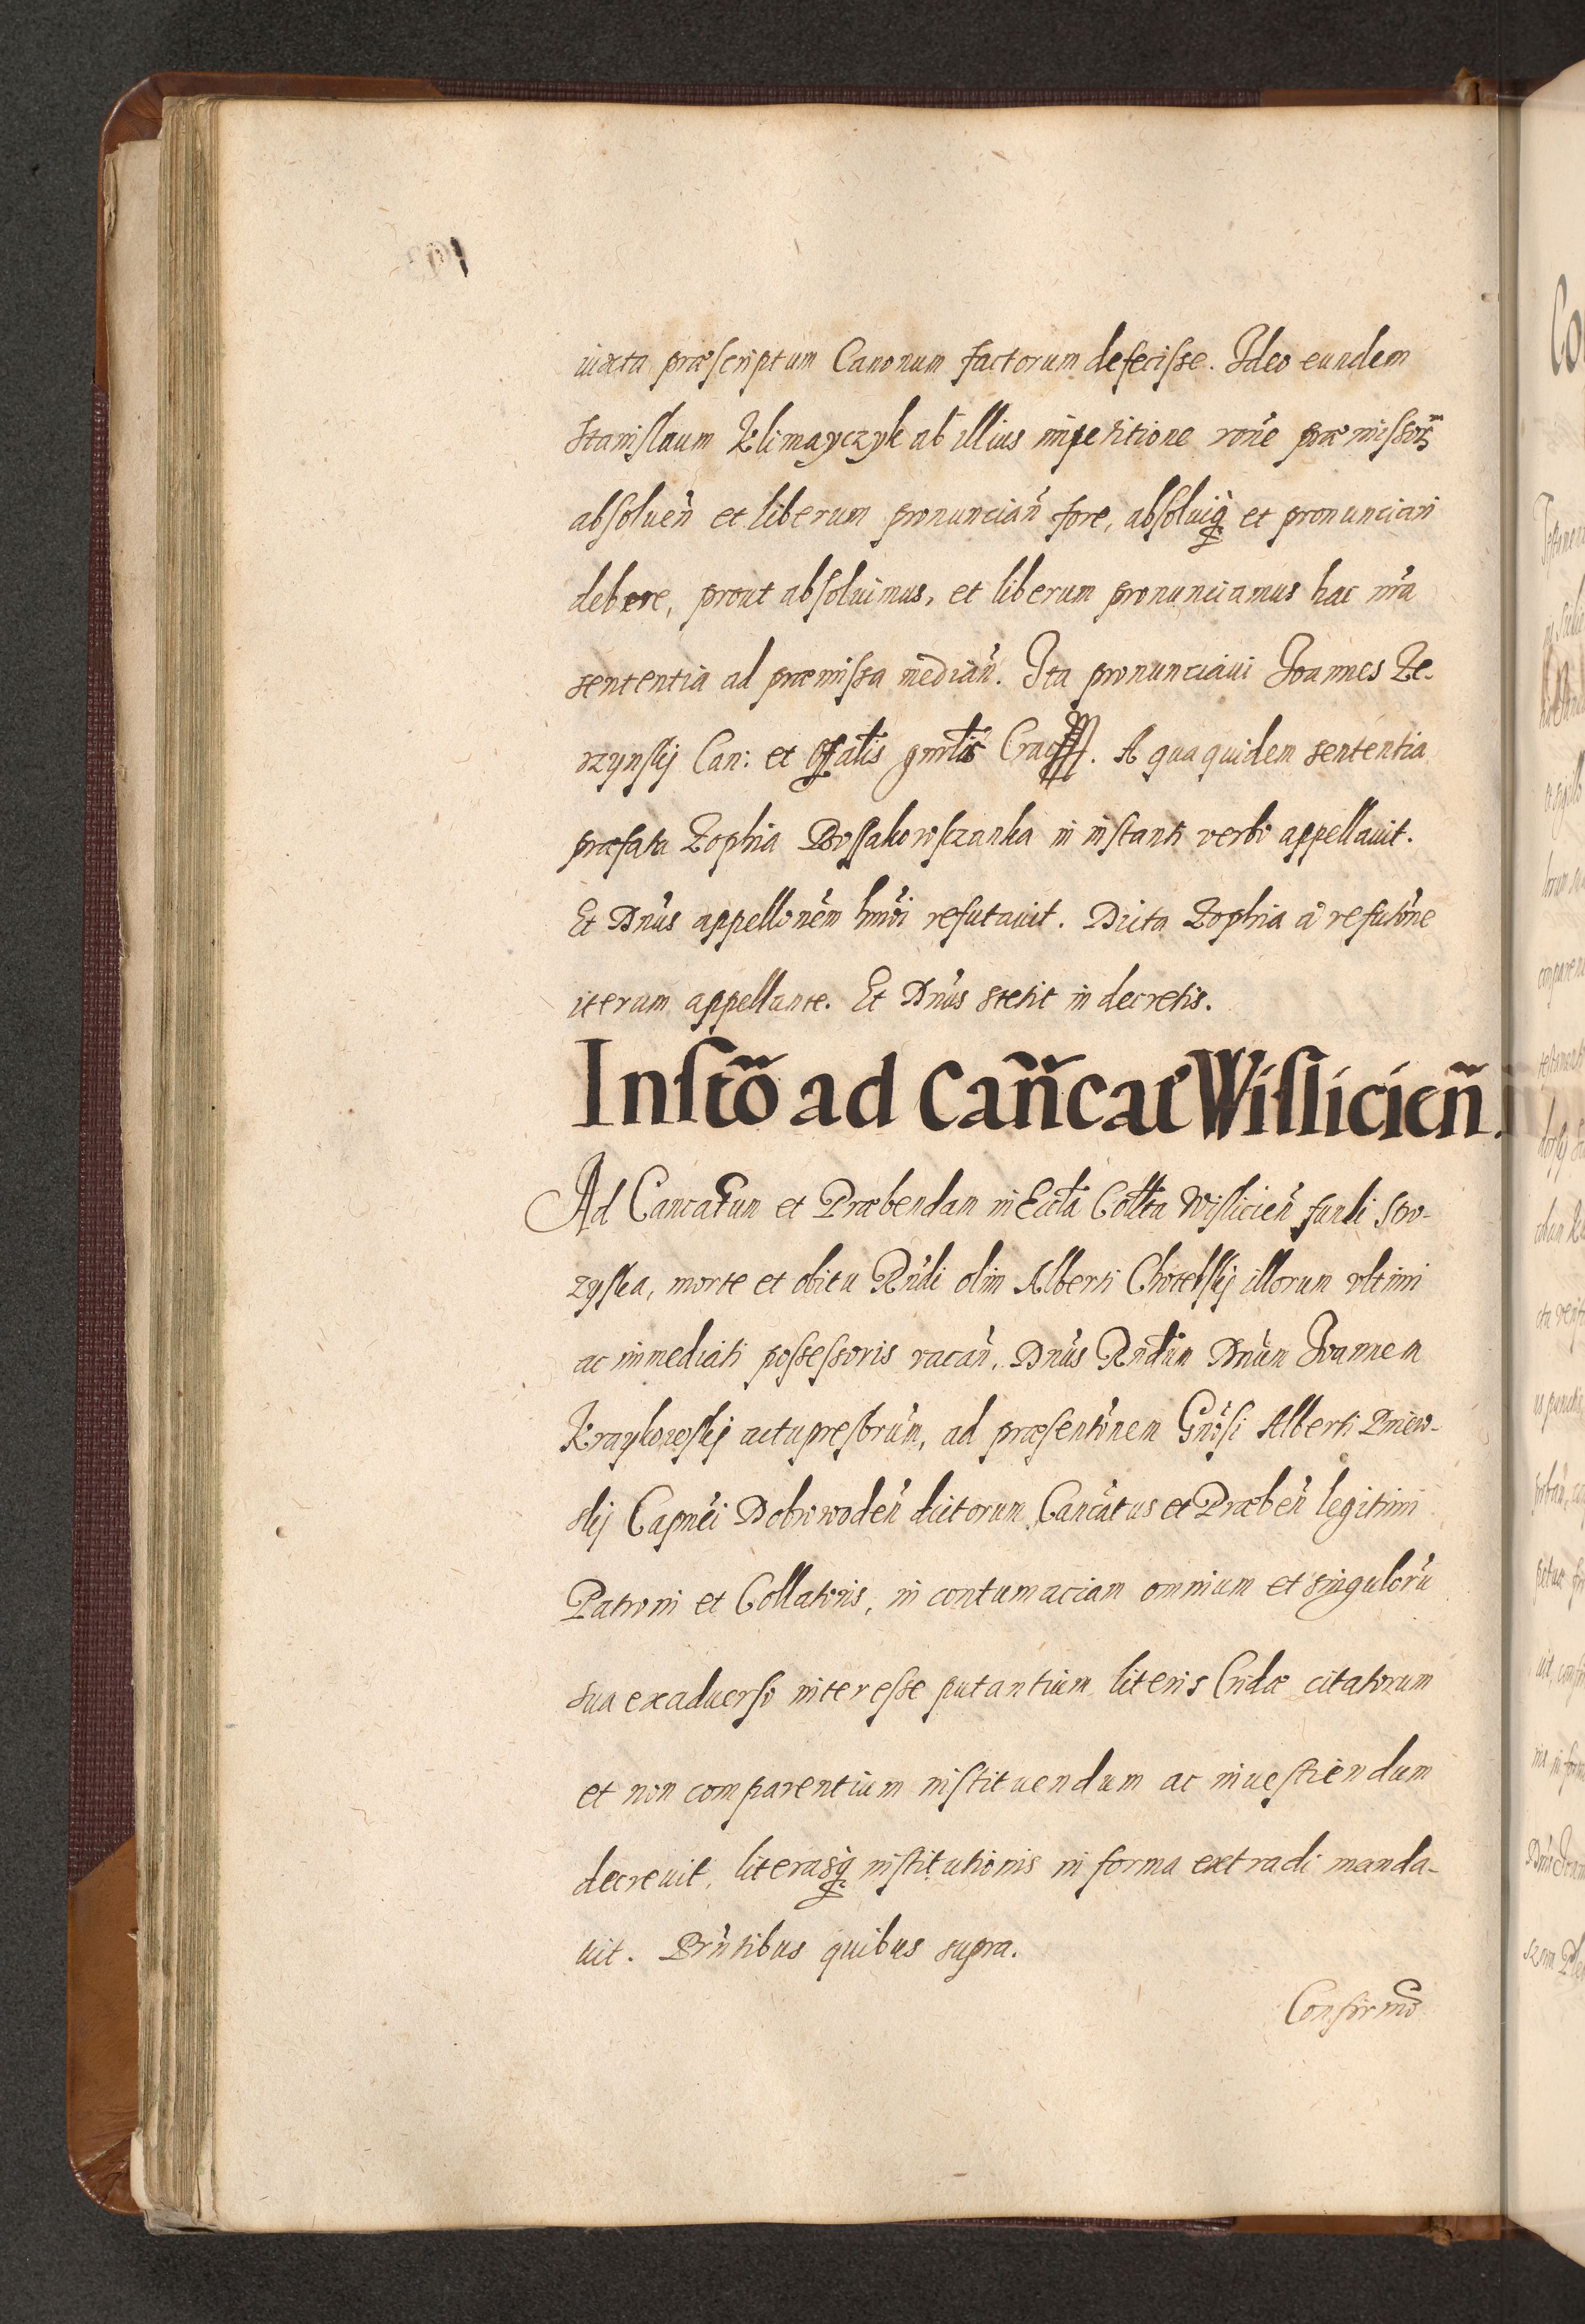 iuxta præscriptum Canonum factorum defecisse. Ideo eundem
Stanislaum Klimayczyk ab illius impetitione rõne præmissorũ
absolueñ et liberum pronunciañ fore, absoluiq; et pronunciari
debere, prout absoluimus, et liberum pronunciamus hac nr̃a
sententia ad præmissa mediañ. Ita pronunciaui Joannes Ze-
rzynskj Can: et Offãlis gnrl̃is Crac. A qua quidem sententia
præfata Zophia Possakowszanka in instanti verbo appellauit.
Et Dnũs appellonẽm hmõi refutauit. Dicta Zophia à refutõne
iterum appellante. Et Dnũs stetit in decretis.
Instõ ad Cañcat Wisliciẽn.
Ad Cancatum et Præbendam in Eccl̃ia Coll̃ta Wisliceñ fundi Stro-
zyska, morte et obitu Rñdi olim Alberti Chotelskj illorum vltimi
ac immediati possessoris vacañ, Dnũs Rndũm Dnũm Joannem
Kraykowskj actu presbrũm, ad præsentõnem Gnõsi Alberti Pniew-
skj Capnẽi Dobrowodeñ dictorum Cancãtus et Præbeñ legitimi
Patroni et Collatoris, in contumaciam omnium et singulorũ
sua exaduerso interesse putantium literis Cridæ citatorum
et non comparentium instituendum ac inuestiendum
decreuit, literasq; institutionis in forma extradi manda-
uit. Prñtibus quibus supra.
Confirmõ